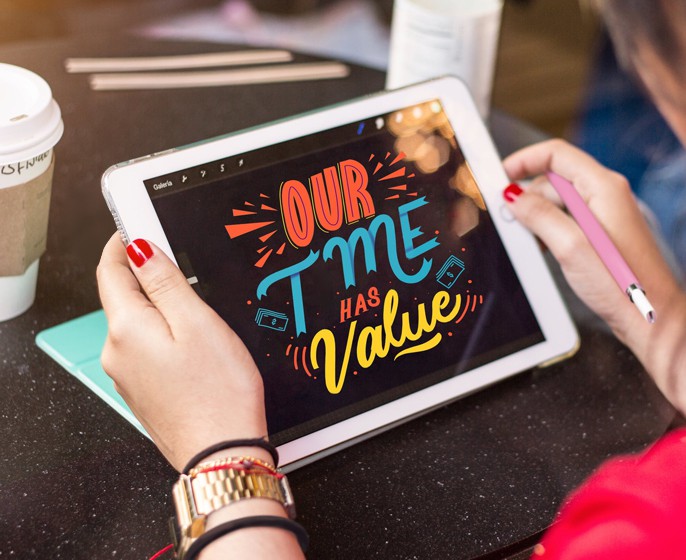 Galería
OUR
TIME
HAS
Value